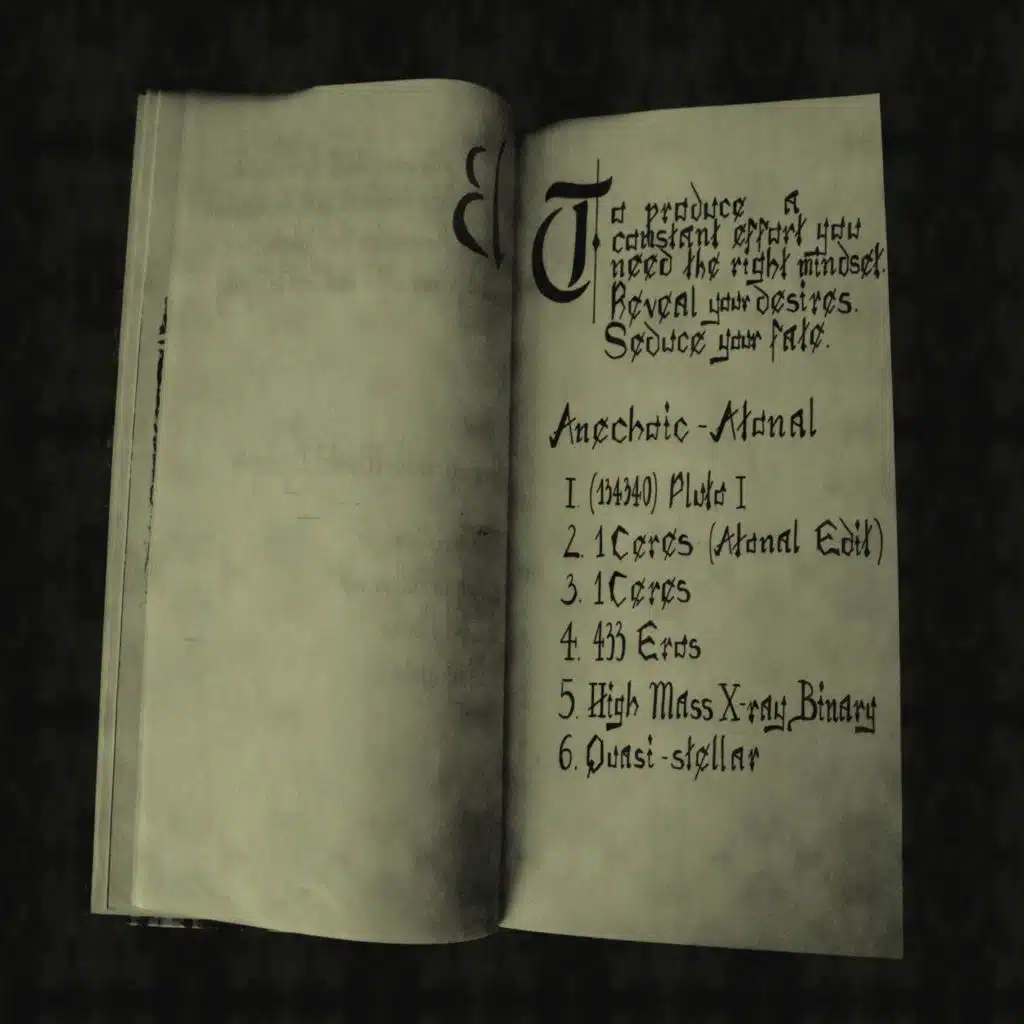 To produce a
constant effort you
need the right mindset.
Reveal your desires.
Seduce your fate.
Anechoic - Atonal
1. (134340) Pluto I
2. 1 Ceres (Atonal Edit)
3. 1 Ceres
4. 433 Eros
5. High Mass X-ray Binary
6. Quasi-stellar